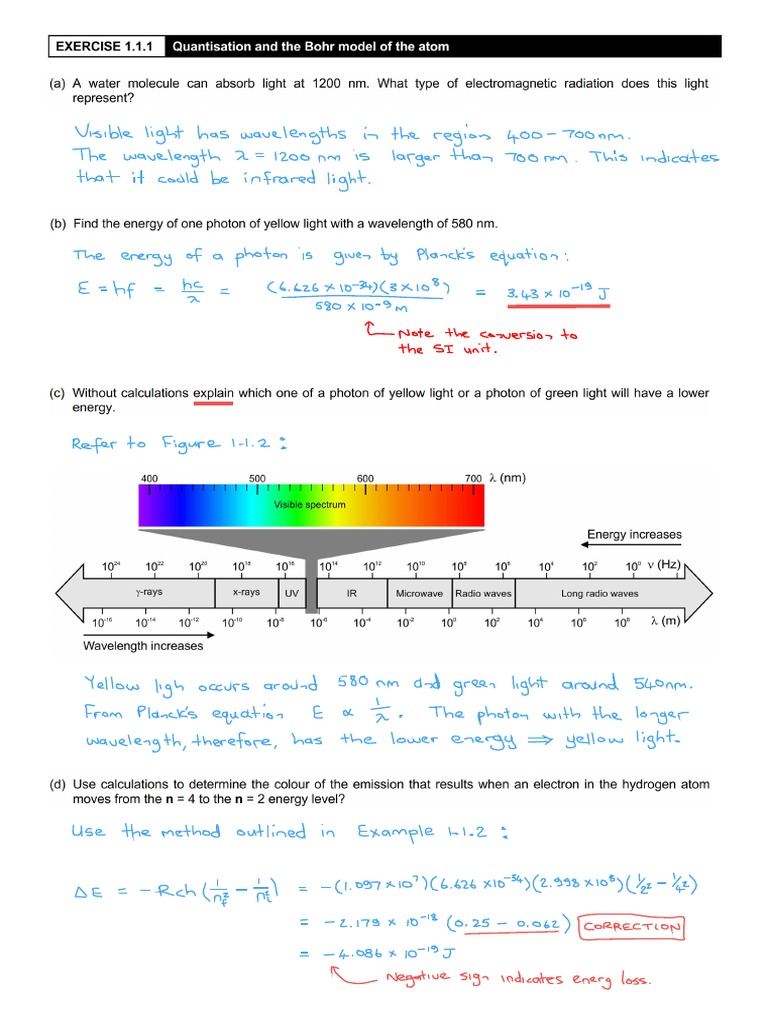 EXERCISE 1.1.1 Quantisation and the Bohr model of the atom
(a) A water molecule can absorb light at 1200 nm. What type of electromagnetic radiation does this light
represent?
Visible light has wavelengths in the region 400 – 700 nm.
The wavelength λ = 1200 nm is larger than 700 nm. This indicates
that it could be infrared light.
(b) Find the energy of one photon of yellow light with a wavelength of 580 nm.
The energy of a photon is given by Planck's equation:
E = hf = hc/λ = (6.626 × 10⁻³⁴)(3 × 10⁸)/580 × 10⁻⁹ m = 3.43 × 10⁻¹⁹ J
Note the conversion to
the SI unit.
(c) Without calculations explain which one of a photon of yellow light or a photon of green light will have a lower
energy.
Refer to Figure 1.1.2 :
400 500 600 700 λ (nm)
Visible spectrum
Energy increases
10²⁴ 10²² 10²⁰ 10¹⁸ 10¹⁶ 10¹⁴ 10¹² 10¹⁰ 10⁸ 10⁶ 10⁴ 10² 10⁰ ν (Hz)
γ-rays x-rays UV IR Microwave Radio waves Long radio waves
10⁻¹⁶ 10⁻¹⁴ 10⁻¹² 10⁻¹⁰ 10⁻⁸ 10⁻⁶ 10⁻⁴ 10⁻² 10⁰ 10² 10⁴ 10⁶ 10⁸ λ (m)
Wavelength increases
Yellow ligh occurs around 580 nm and green light around 540nm.
From Planck's equation E ∝ 1/λ. The photon with the longer
wavelength, therefore, has the lower energy ⇒ yellow light.
(d) Use calculations to determine the colour of the emission that results when an electron in the hydrogen atom
moves from the n = 4 to the n = 2 energy level?
Use the method outlined in Example 1.1.2 :
ΔE = −Rch (1/n_f² − 1/n_i²) = −(1.097 × 10⁷)(6.626 × 10⁻³⁴)(2.998 × 10⁸)(1/2² − 1/4²)
= −2.179 × 10⁻¹⁸ (0.25 − 0.062) CORRECTION
= −4.086 × 10⁻¹⁹ J
Negative sign indicates energ loss.